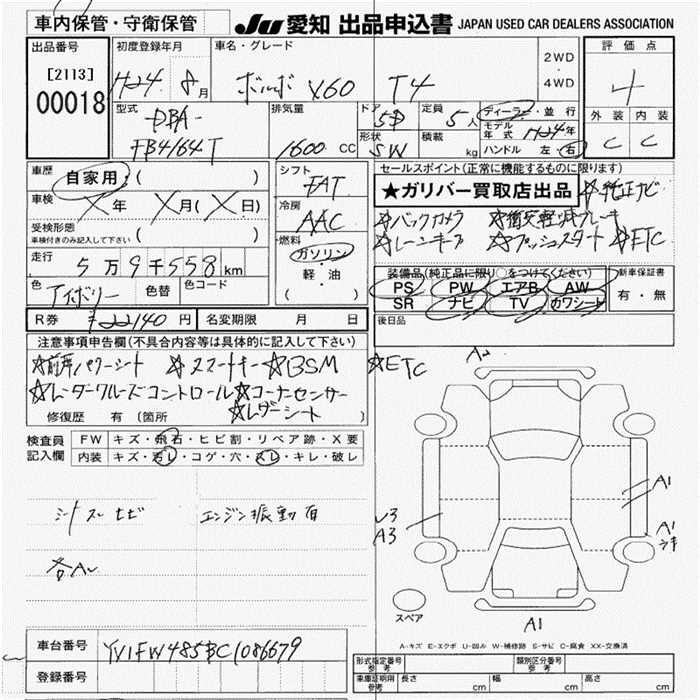 車内保管・守衛保管
JU 愛知 出品申込書 JAPAN USED CAR DEALERS ASSOCIATION
出品番号 初度登録年月 車名・グレード 2WD・4WD 評価点
[2113]
00018 H24年 8月 ボルボ V60 T4 4
外装 内装
C C
型式 排気量 ドア 定員 ディーラー・並行
DBA- 5D 5人 モデル年式 H24年
FB4164T 1600 CC 形状 積載 ハンドル 左・右
SW kg
車歴 自家用・( ) シフト セールスポイント(正常に機能するものに限ります)
FAT ★ガリバー買取店出品 ☆純正ナビ
車検 X年 X月(X日) 冷房
AAC ☆バックカメラ ☆衝突軽減ブレーキ
受検形態 ( )
車検付きのみ記入して下さい
燃料 ☆レーンキープ ☆プッシュスタート ☆ETC
走行 5万9千558km ガソリン・軽・油 ( )
装備品(純正品に限り〇をつけてください) 新車保証書
色 アイボリー 色替 色コード
PS PW エアB AW 有・無
SR ナビ TV カワシート
R券 ¥22140円 名変期限 月 日 後日品
注意事項申告欄(不具合内容等は具体的に記入して下さい)
☆前席パワーシート ☆スマートキー ☆BSM ☆ETC
☆レーダークルーズコントロール ☆コーナーセンサー
☆レザーシート
修復歴 有(箇所 )
検査員記入欄 FW キズ・飛石・ヒビ割・リペア跡・X要
内装 キズ・汚レ・コゲ・穴・スレ・キレ・破レ
シートスレ エンジン振動有
各A
A2
A1
A3
A1
A1
スペア
A-キズ E-エクボ U-凹み W-補修跡 S-サビ C-腐食 XX-交換済
車台番号 YV1FW485BC1086679
登録番号
形式指定番号 参考 類別区分番号 参考
車庫証明用 参考 長さ cm 幅 cm 高さ cm